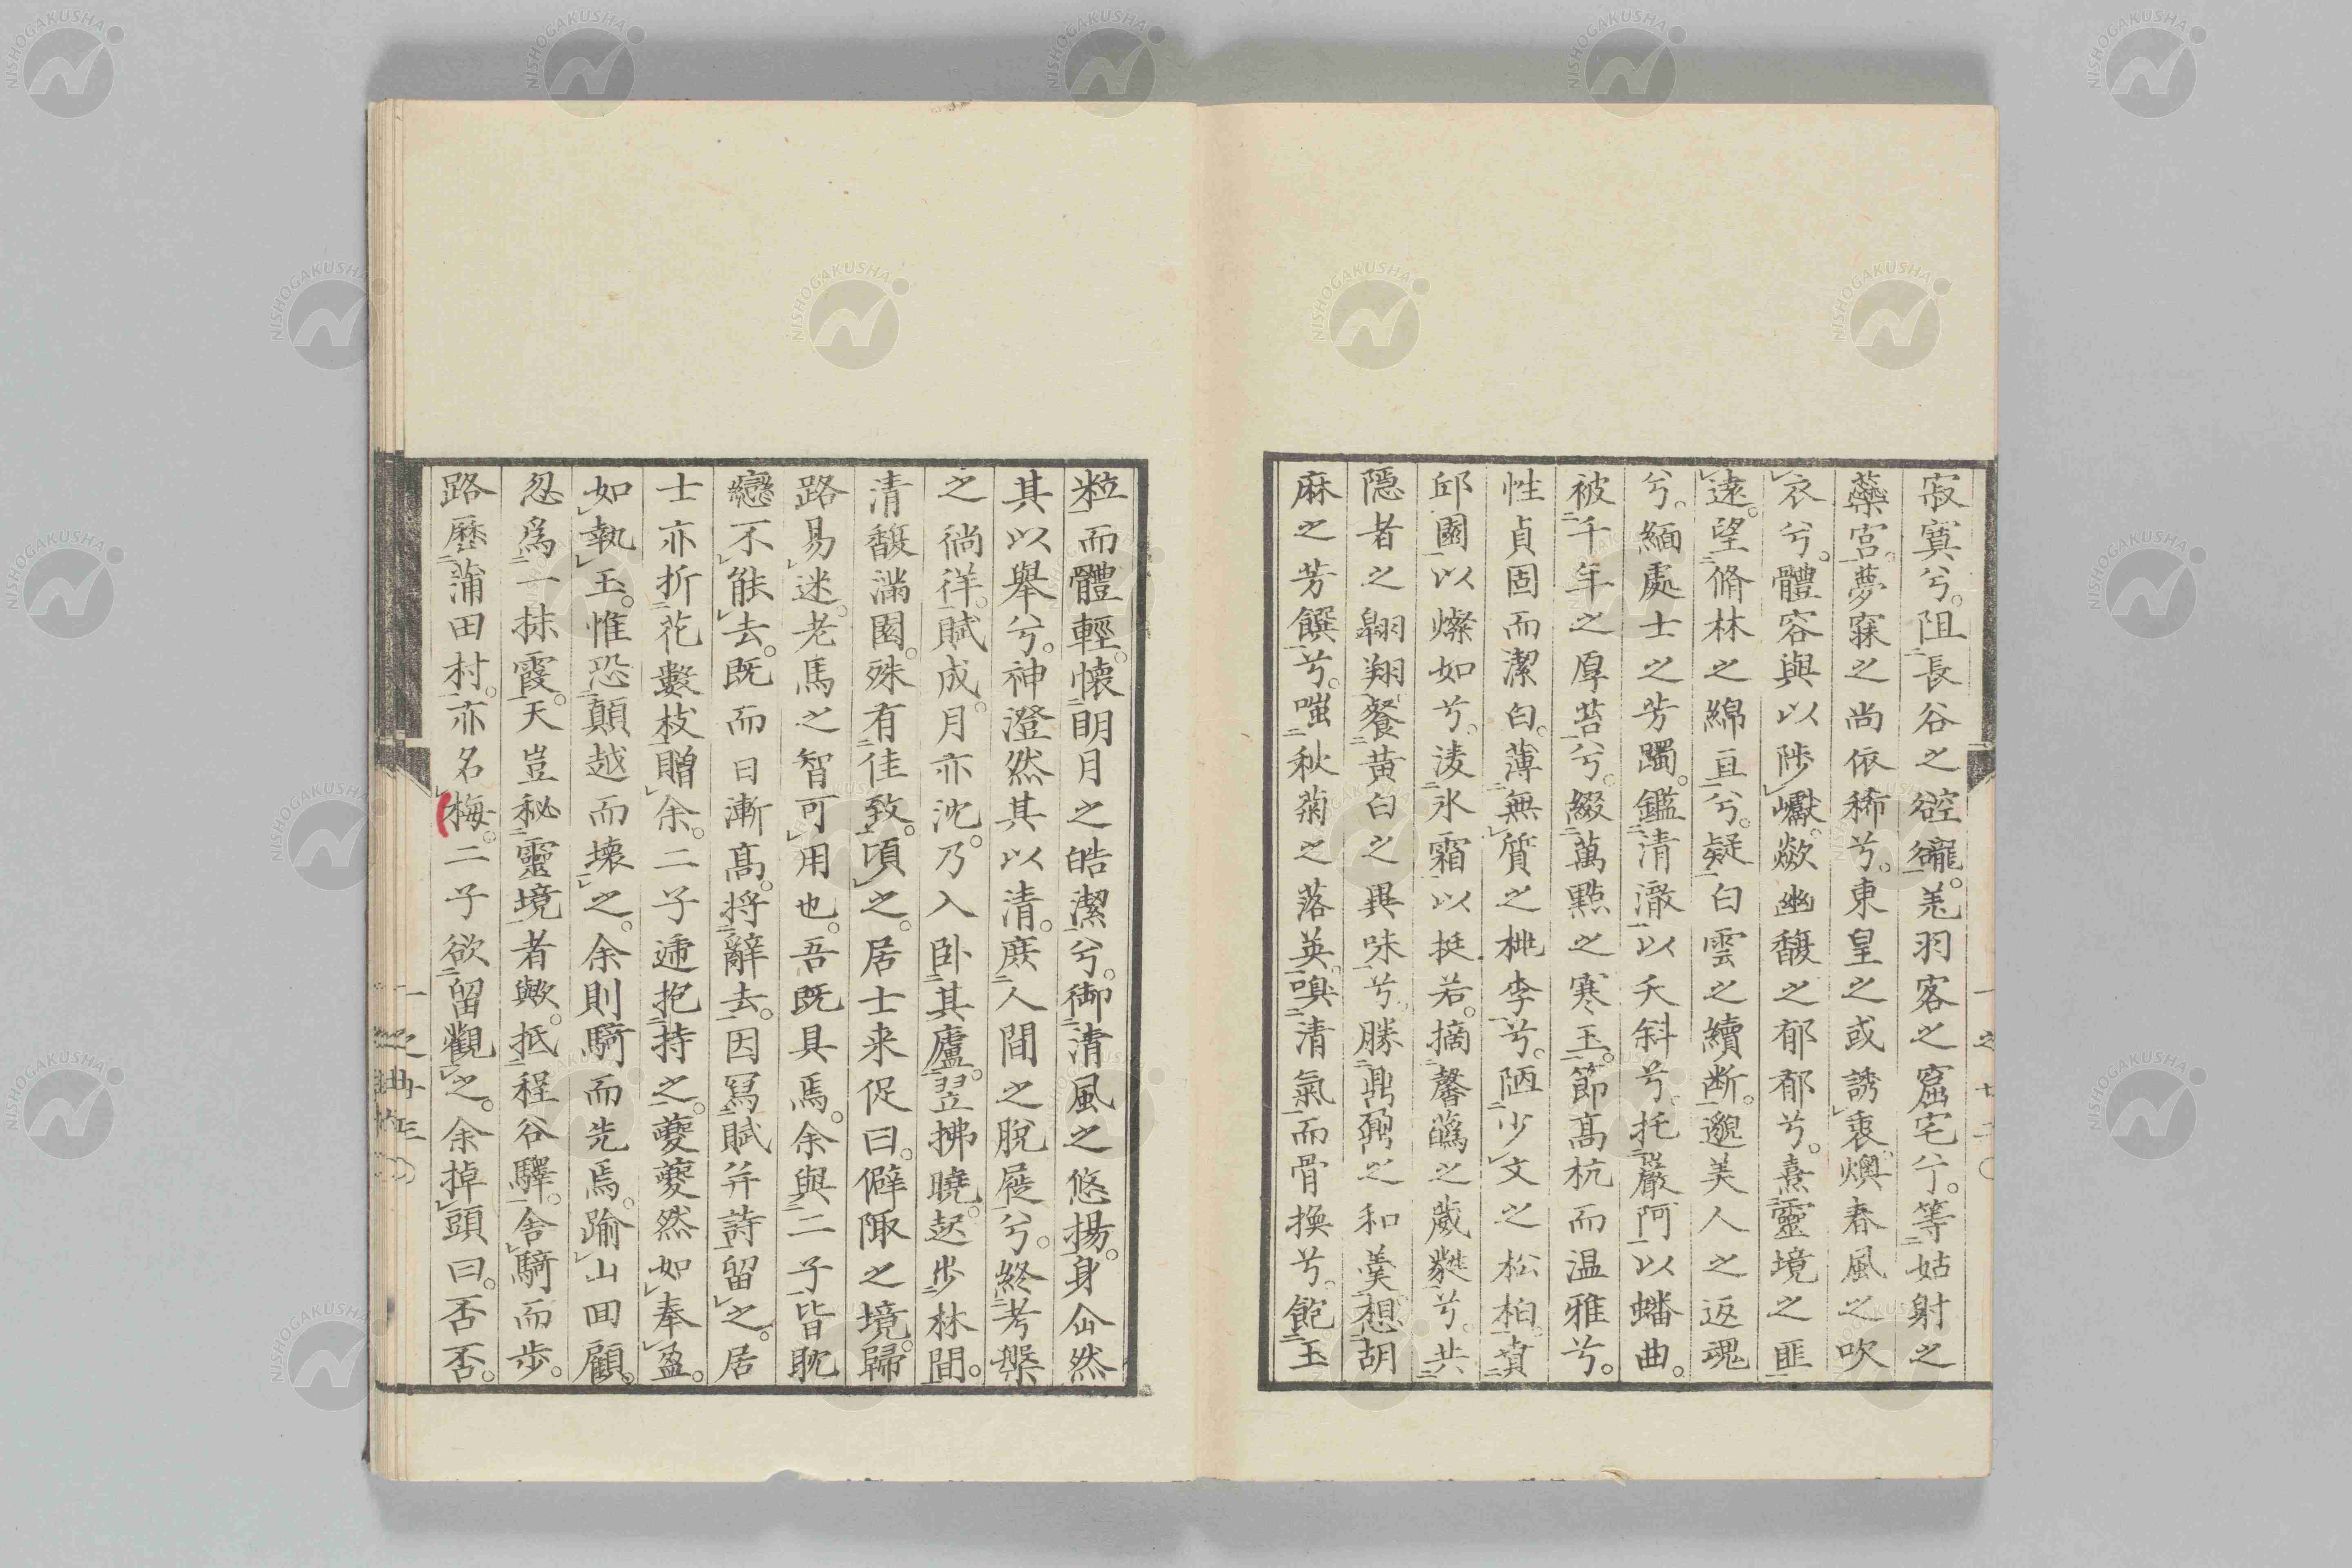 寂寞兮。阻長谷之谾谾。羌羽客之窟宅兮。等姑射之
蘂宮。夢寐之尚依稀兮。東皇之或誘。裛燠春風之吹
衣兮。體容與以陟巘。歘幽馥之郁郁兮。熹靈境之匪
遠。望脩林之綿亘兮。疑白雲之續断。邈美人之返魂
兮。緬處士之芳躅。鑑清澈以夭斜兮。托巖阿以蟠曲。
被千年之厚苔兮。綴萬點之寒玉。節高杭而温雅兮。
性貞固而潔白。薄無質之桃李兮。陋少文之松柏。賁
邱園以燦如兮。淩氷霜以挺若。摘馨蘤之葳蕤兮。共
隱者之翶翔。餐黃白之異味兮。勝鼎鼐之和羹。想胡
麻之芳饌兮。嗤秋菊之落英。嗅清氣而骨換兮。飽玉
粒而體輕。懷明月之皓潔兮。御清風之悠揚。身仚然
其以舉兮。神澄然其以清。庶人間之脫屣兮。終考槃
之徜徉。賦成。月亦沈。乃入卧其廬。翌拂曉。起步林間。
清馥滿園。殊有佳致。頃之。居士来促曰。僻陬之境。歸
路易迷。老馬之智可用也。吾既具焉。余與二子皆耽
戀不能去。既而日漸高。将辭去。因冩賦并詩留之。居
士亦折花數枝贈余。二子逓抱持之。夔夔然如奉盈。
如執玉。惟恐顛越而壞之。余則騎而先焉。踰山回顧。
忽爲一抹霞。天豈秘靈境者歟。抵程谷驛。舎騎而步。
路歷蒲田村。亦名梅。二子欲留觀之。余掉頭曰。否否。